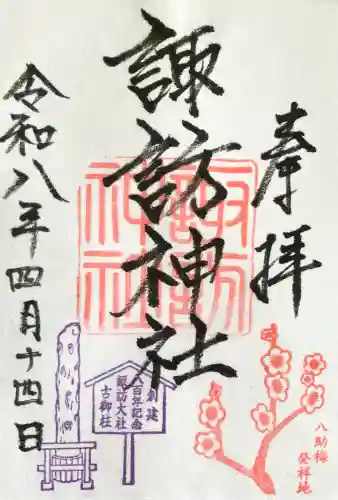 奉拝
諏訪神社
諏訪神社
令和八年四月十四日
創建
八百年記念
諏訪大社
古御柱
八助梅
発祥地